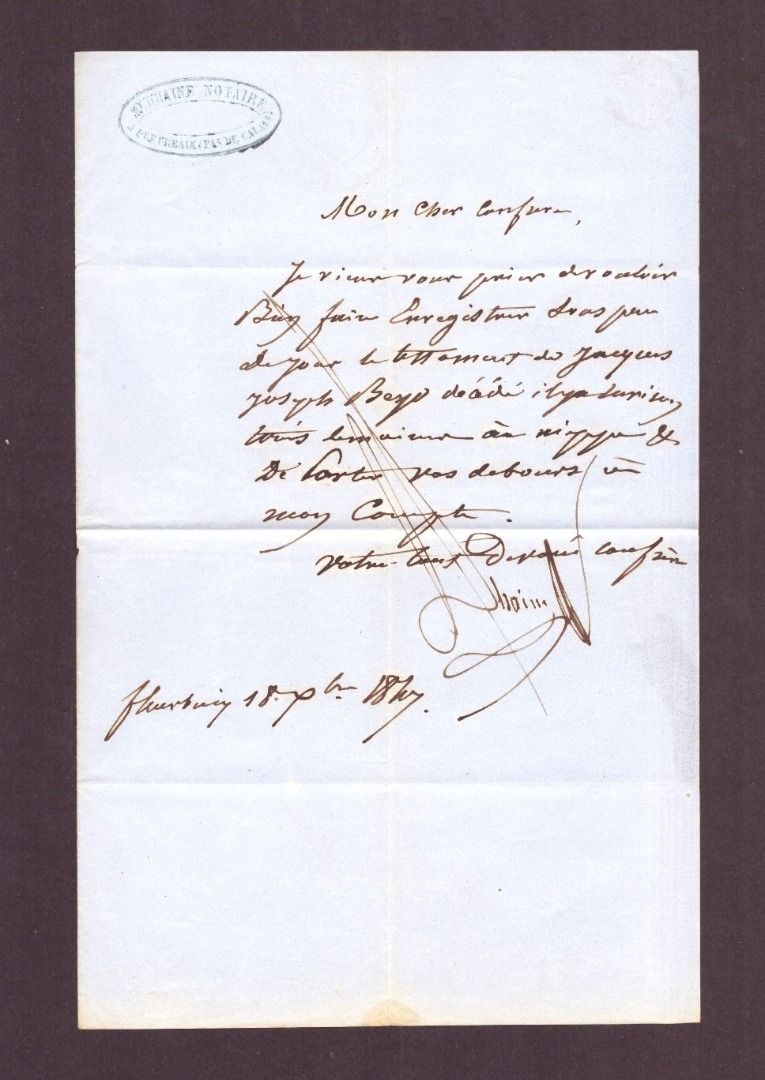 NOTAIRE
A FLEURBAIX (PAS DE CALAIS)
Mon Cher Confrere,
Je viens vous prier de vouloir
Bien faire Enregistrer sous peu
de jour le testament de Jacques
Joseph décédé il y a environ
trois semaines &
De Porter vos debours à
mon Compte.
votre tout Devoué confrère
fleurbaix 18 Xbre